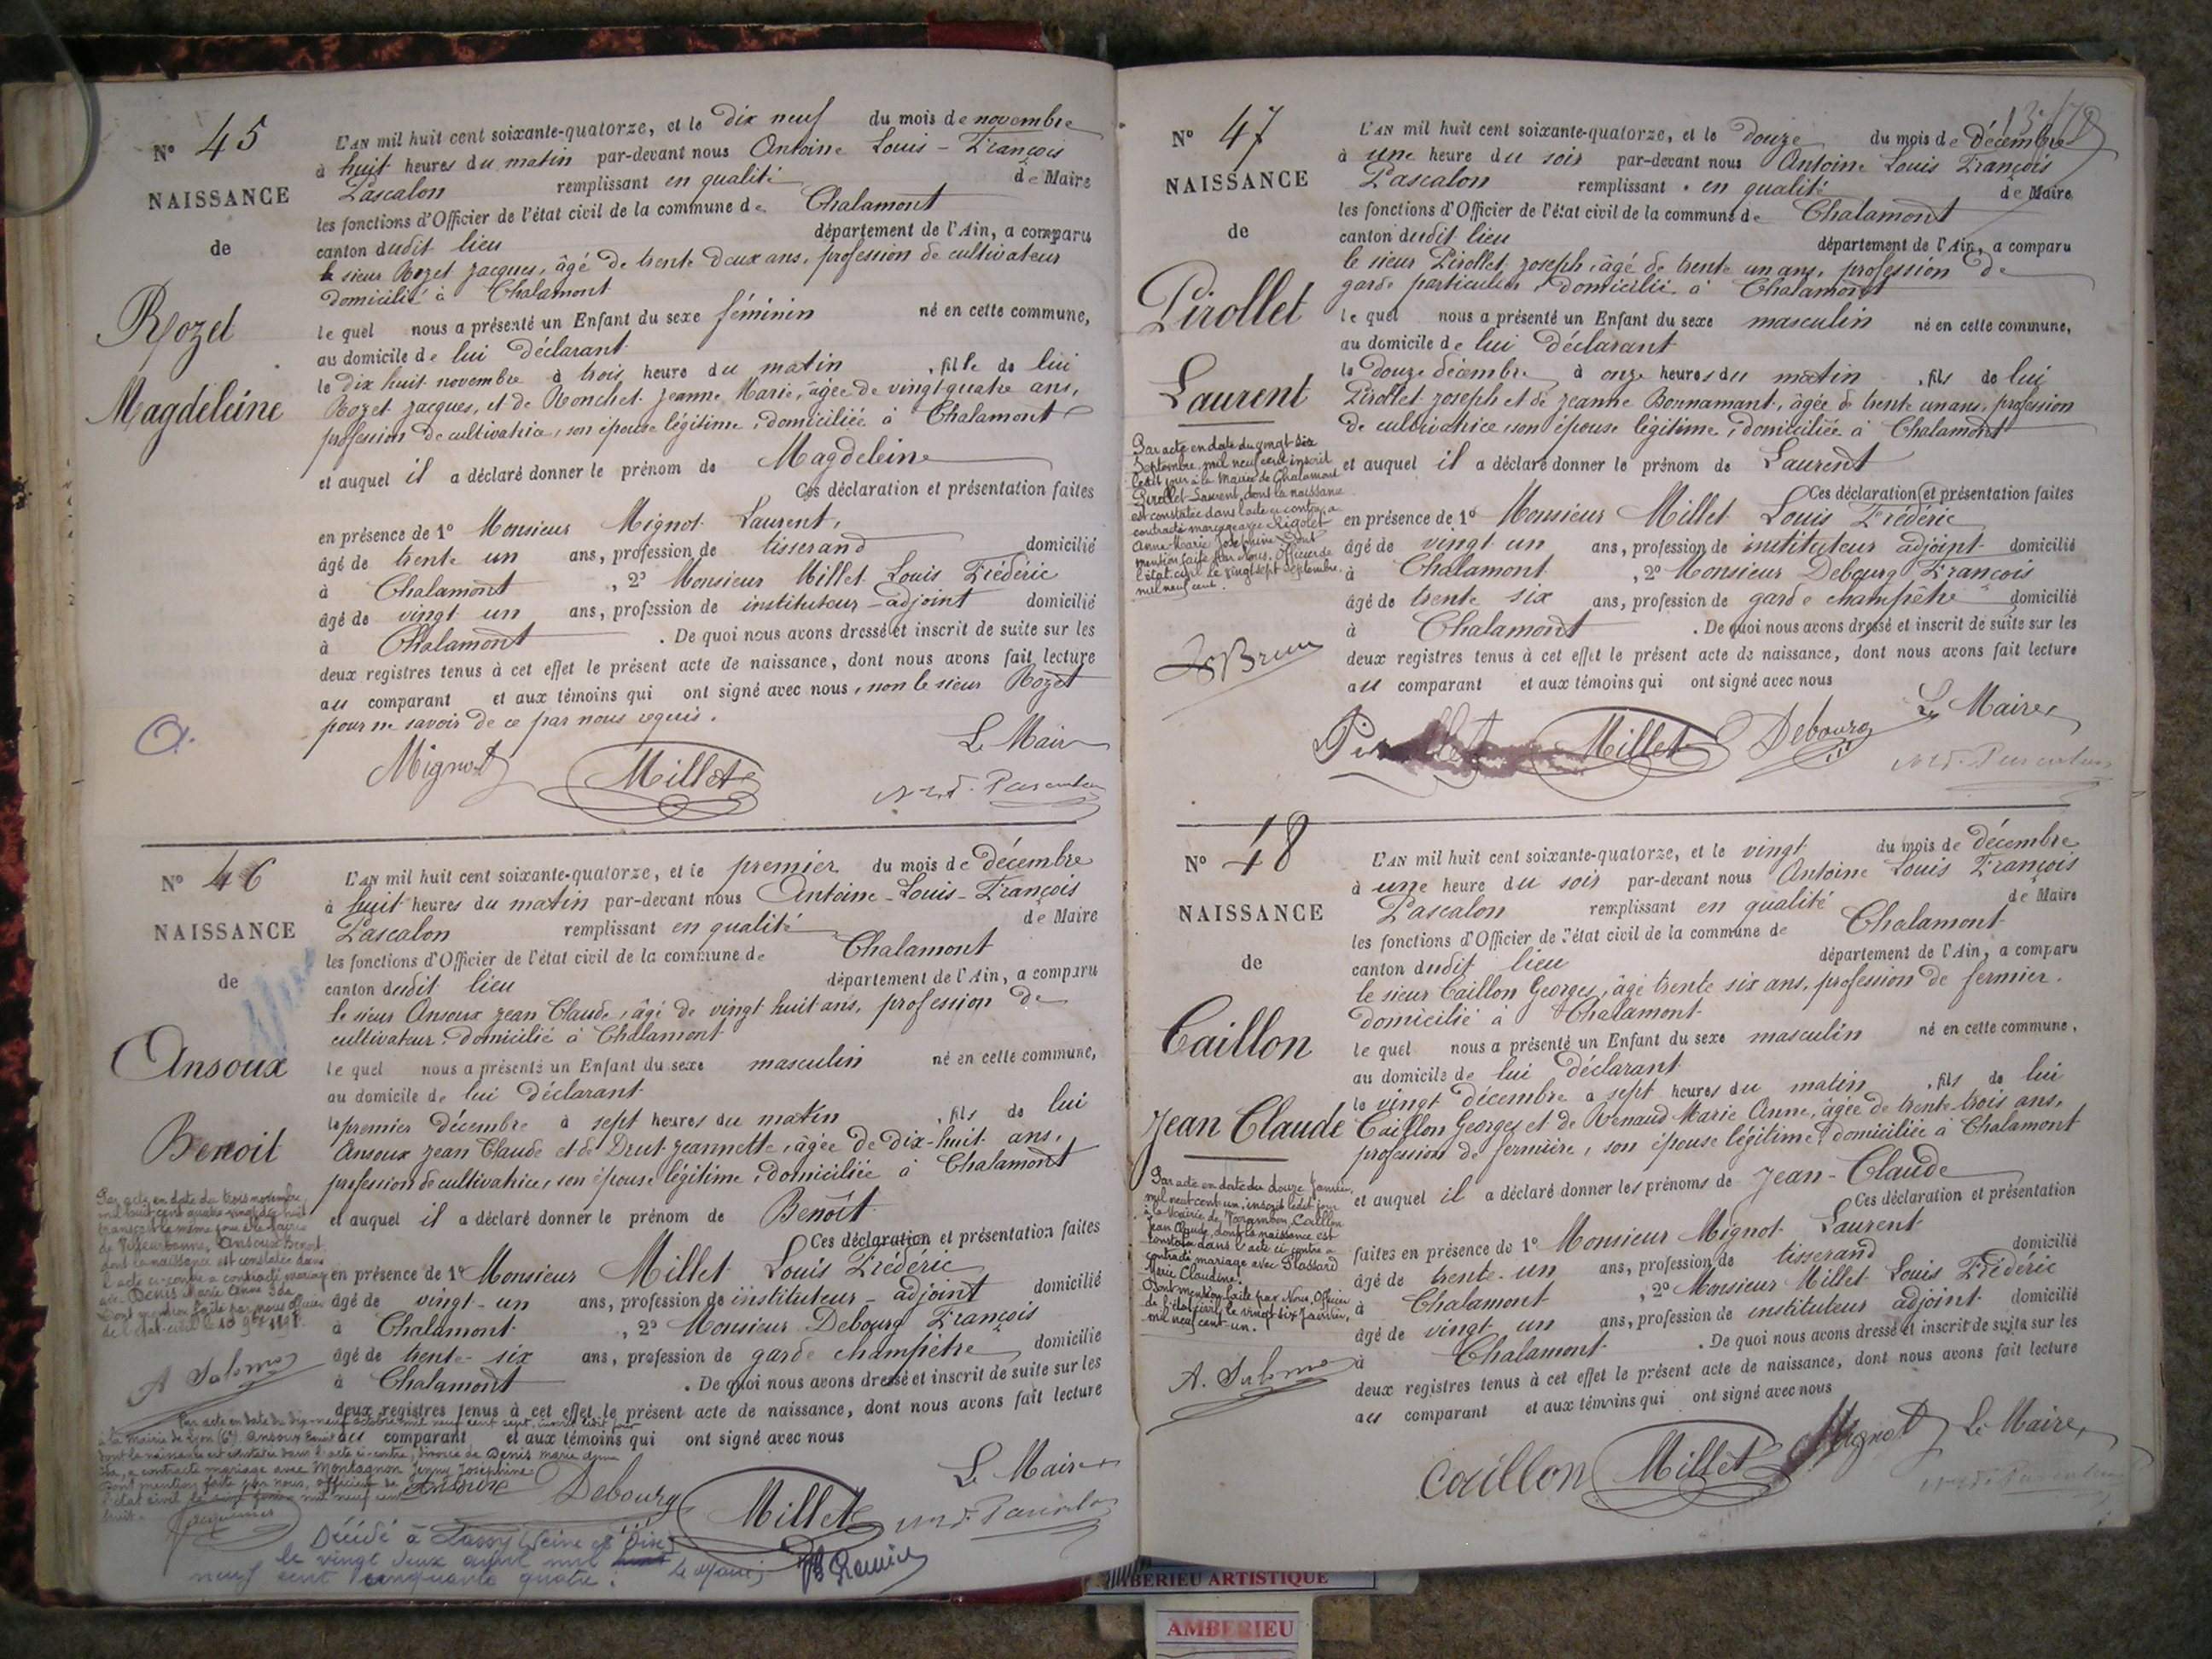 N° 45
NAISSANCE
de
Rozet
Magdeleine
L'AN mil huit cent soixante-quatorze, et le dix neuf du mois de novembre
à huit heures du matin par-devant nous Antoine Louis - François
Pascalon remplissant en qualité de Maire
les fonctions d'Officier de l'état civil de la commune de Chalamont
canton dudit lieu département de l'Ain, a comparu
le sieur Rozet Jacques, âgé de trente deux ans, profession de cultivateur
domicilié à Chalamont
le quel nous a présenté un Enfant du sexe féminin né en cette commune,
au domicile de lui déclarant
le dix huit novembre à trois heure du matin, fille de lui
Rozet Jacques, et de Ronchet Jeanne Marie, âgée de vingt-quatre ans,
profession de cultivatrice, son épouse légitime, domiciliée à Chalamont
et auquel il a déclaré donner le prénom de Magdeleine
Ces déclaration et présentation faites
en présence de 1° Monsieur Mignot Laurent,
âgé de trente un ans, profession de tisserand domicilié
à Chalamont, 2° Monsieur Millet Louis Frédéric
âgé de vingt un ans, profession de instituteur-adjoint domicilié
à Chalamont. De quoi nous avons dressé et inscrit de suite sur les
deux registres tenus à cet effet le présent acte de naissance, dont nous avons fait lecture
au comparant et aux témoins qui ont signé avec nous, non le sieur Rozet
pour ne savoir de ce par nous requis.
Le Maire
Mignot Millet
N° 46
NAISSANCE
de
Ansoux
Benoit
L'AN mil huit cent soixante-quatorze, et le premier du mois de décembre
à huit heures du matin par-devant nous Antoine-Louis-François
Pascalon remplissant en qualité de Maire
les fonctions d'Officier de l'état civil de la commune de Chalamont
canton dudit lieu département de l'Ain, a comparu
le sieur Ansoux Jean Claude, âgé de vingt huit ans, profession de
cultivateur, domicilié à Chalamont
le quel nous a présenté un Enfant du sexe masculin né en cette commune,
au domicile de lui déclarant
le premier décembre à sept heures du matin, fils de lui
Ansoux Jean Claude et de Drut Jeannette, âgée de dix-huit ans,
profession de cultivatrice, son épouse légitime, domiciliée à Chalamont
et auquel il a déclaré donner le prénom de Benoît
Ces déclaration et présentation faites
en présence de 1° Monsieur Millet Louis Frédéric
âgé de vingt-un ans, profession de instituteur-adjoint domicilié
à Chalamont, 2° Monsieur Debourg François
âgé de trente-six ans, profession de garde champêtre domicilié
à Chalamont. De quoi nous avons dressé et inscrit de suite sur les
deux registres tenus à cet effet le présent acte de naissance, dont nous avons fait lecture
au comparant et aux témoins qui ont signé avec nous
Le Maire
Ansoux Debourg Millet
Par acte en date du trois novembre
mil huit cent quatre vingt dix huit
transcrit le même jour à la Mairie
de Villeurbanne, Ansoux Benoit
dont la naissance est constatée dans
l'acte ci-contre a contracté mariage
avec Denis Marie Anne Ida
Dont mention faite par nous officier
de l'état-civil le 10 9bre 1898.
Par acte en date du dix-neuf octobre mil neuf cent sept, inscrit ledit jour
à la mairie de Lyon (6e) Ansoux Benoit
dont la naissance est constatée dans l'acte ci-contre, divorcé de Denis Marie Anne
Ida, a contracté mariage avec Montagnon Jenny Joséphine
Dont mention faite par nous, officier de
l'état civil mil neuf cent
huit.
Décédé à (Seine et Oise)
le vingt deux avril mil
neuf cent cinquante quatre.
Le Maire
N° 47
NAISSANCE
de
Pirollet
Laurent
L'AN mil huit cent soixante-quatorze, et le douze du mois de décembre
à une heure du soir par-devant nous Antoine Louis François
Pascalon remplissant en qualité de Maire
les fonctions d'Officier de l'état civil de la commune de Chalamont
canton dudit lieu département de l'Ain, a comparu
le sieur Pirollet Joseph, âgé de trente un ans, profession de
garde particulier, domicilié à Chalamont
le quel nous a présenté un Enfant du sexe masculin né en cette commune,
au domicile de lui déclarant
le douze décembre à onze heures du matin, fils de lui
Pirollet Joseph et de Jeanne Bonnamant, âgée de trente un ans, profession
de cultivatrice son épouse légitime, domiciliée à Chalamont
et auquel il a déclaré donner le prénom de Laurent
Ces déclaration et présentation faites
en présence de 1° Monsieur Millet Louis Frédéric
âgé de vingt un ans, profession de instituteur adjoint domicilié
à Chalamont, 2° Monsieur Debourg François
âgé de trente six ans, profession de garde champêtre domicilié
à Chalamont. De quoi nous avons dressé et inscrit de suite sur les
deux registres tenus à cet effet le présent acte de naissance, dont nous avons fait lecture
au comparant et aux témoins qui ont signé avec nous
Le Maire
Pirollet Millet Debourg
Par acte en date du vingt six
Septembre mil neuf cent inscrit
ledit jour à la Mairie de Chalamont
Pirollet Laurent, dont la naissance
est constatée dans l'acte ci-contre, a
contracté mariage avec Rigolet
Anne-Marie Joséphine. Dont
mention faite par Nous, Officier de
l'état civil le vingt sept Septembre
mil neuf cent.
N° 48
NAISSANCE
de
Caillon
Jean Claude
L'AN mil huit cent soixante-quatorze, et le vingt du mois de décembre
à une heure du soir par-devant nous Antoine Louis François
Pascalon remplissant en qualité de Maire
les fonctions d'Officier de l'état civil de la commune de Chalamont
canton dudit lieu département de l'Ain, a comparu
le sieur Caillon Georges, âgé trente six ans, profession de fermier.
domicilié à Chalamont
le quel nous a présenté un Enfant du sexe masculin né en cette commune,
au domicile de lui déclarant
le vingt décembre à sept heures du matin, fils de lui
Caillon Georges et de Renaud Marie Anne, âgée de trente-trois ans,
profession de fermière, son épouse légitime, domiciliée à Chalamont
et auquel il a déclaré donner les prénoms de Jean-Claude
Ces déclaration et présentation
faites en présence de 1° Monsieur Mignot Laurent
âgé de trente-un ans, profession de tisserand domicilié
à Chalamont, 2° Monsieur Millet Louis Frédéric
âgé de vingt un ans, profession de instituteur adjoint domicilié
à Chalamont. De quoi nous avons dressé et inscrit de suite sur les
deux registres tenus à cet effet le présent acte de naissance, dont nous avons fait lecture
au comparant et aux témoins qui ont signé avec nous
Caillon Millet Mignot Le Maire
Par acte en date du douze Janvier
mil neuf cent un, inscrit ledit jour
à la Mairie de Varambon, Caillon
Jean Claude, dont la naissance est
constatée dans l'acte ci-contre a
contracté mariage avec Plassard
Marie Claudine.
Dont mention faite par Nous, Officier
de l'état civil le vingt six Janvier,
mil neuf cent un.
AMBERIEU ARTISTIQUE
AMBERIEU